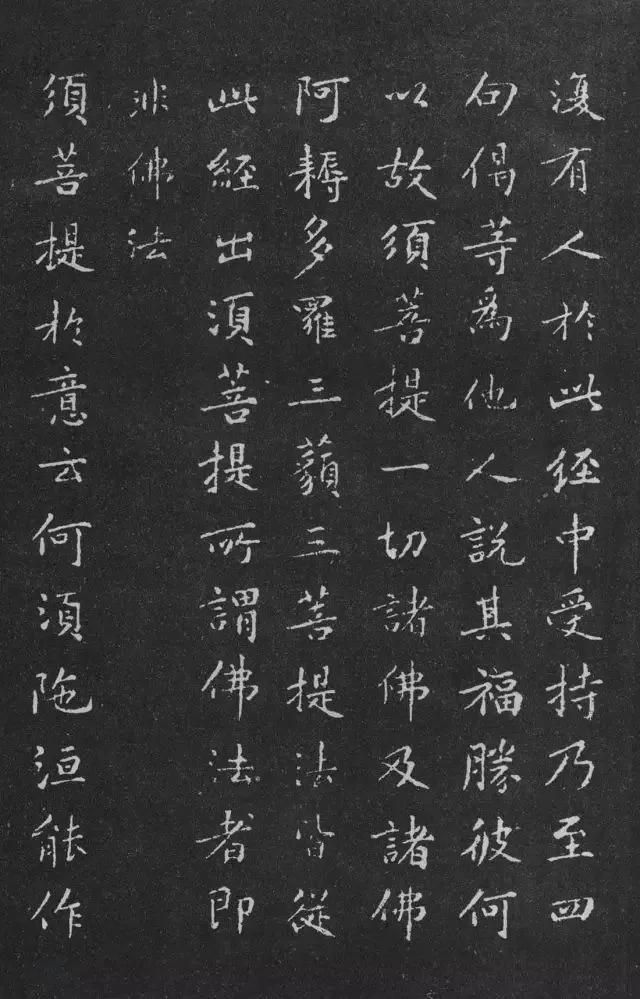 復有人於此経中受持乃至四
句偈等為他人說其福勝彼何
以故須菩提一切諸佛及諸佛
阿耨多羅三藐三菩提法皆從
此經出須菩提所謂佛法者即
非佛法
須菩提於意云何須陁洹能作